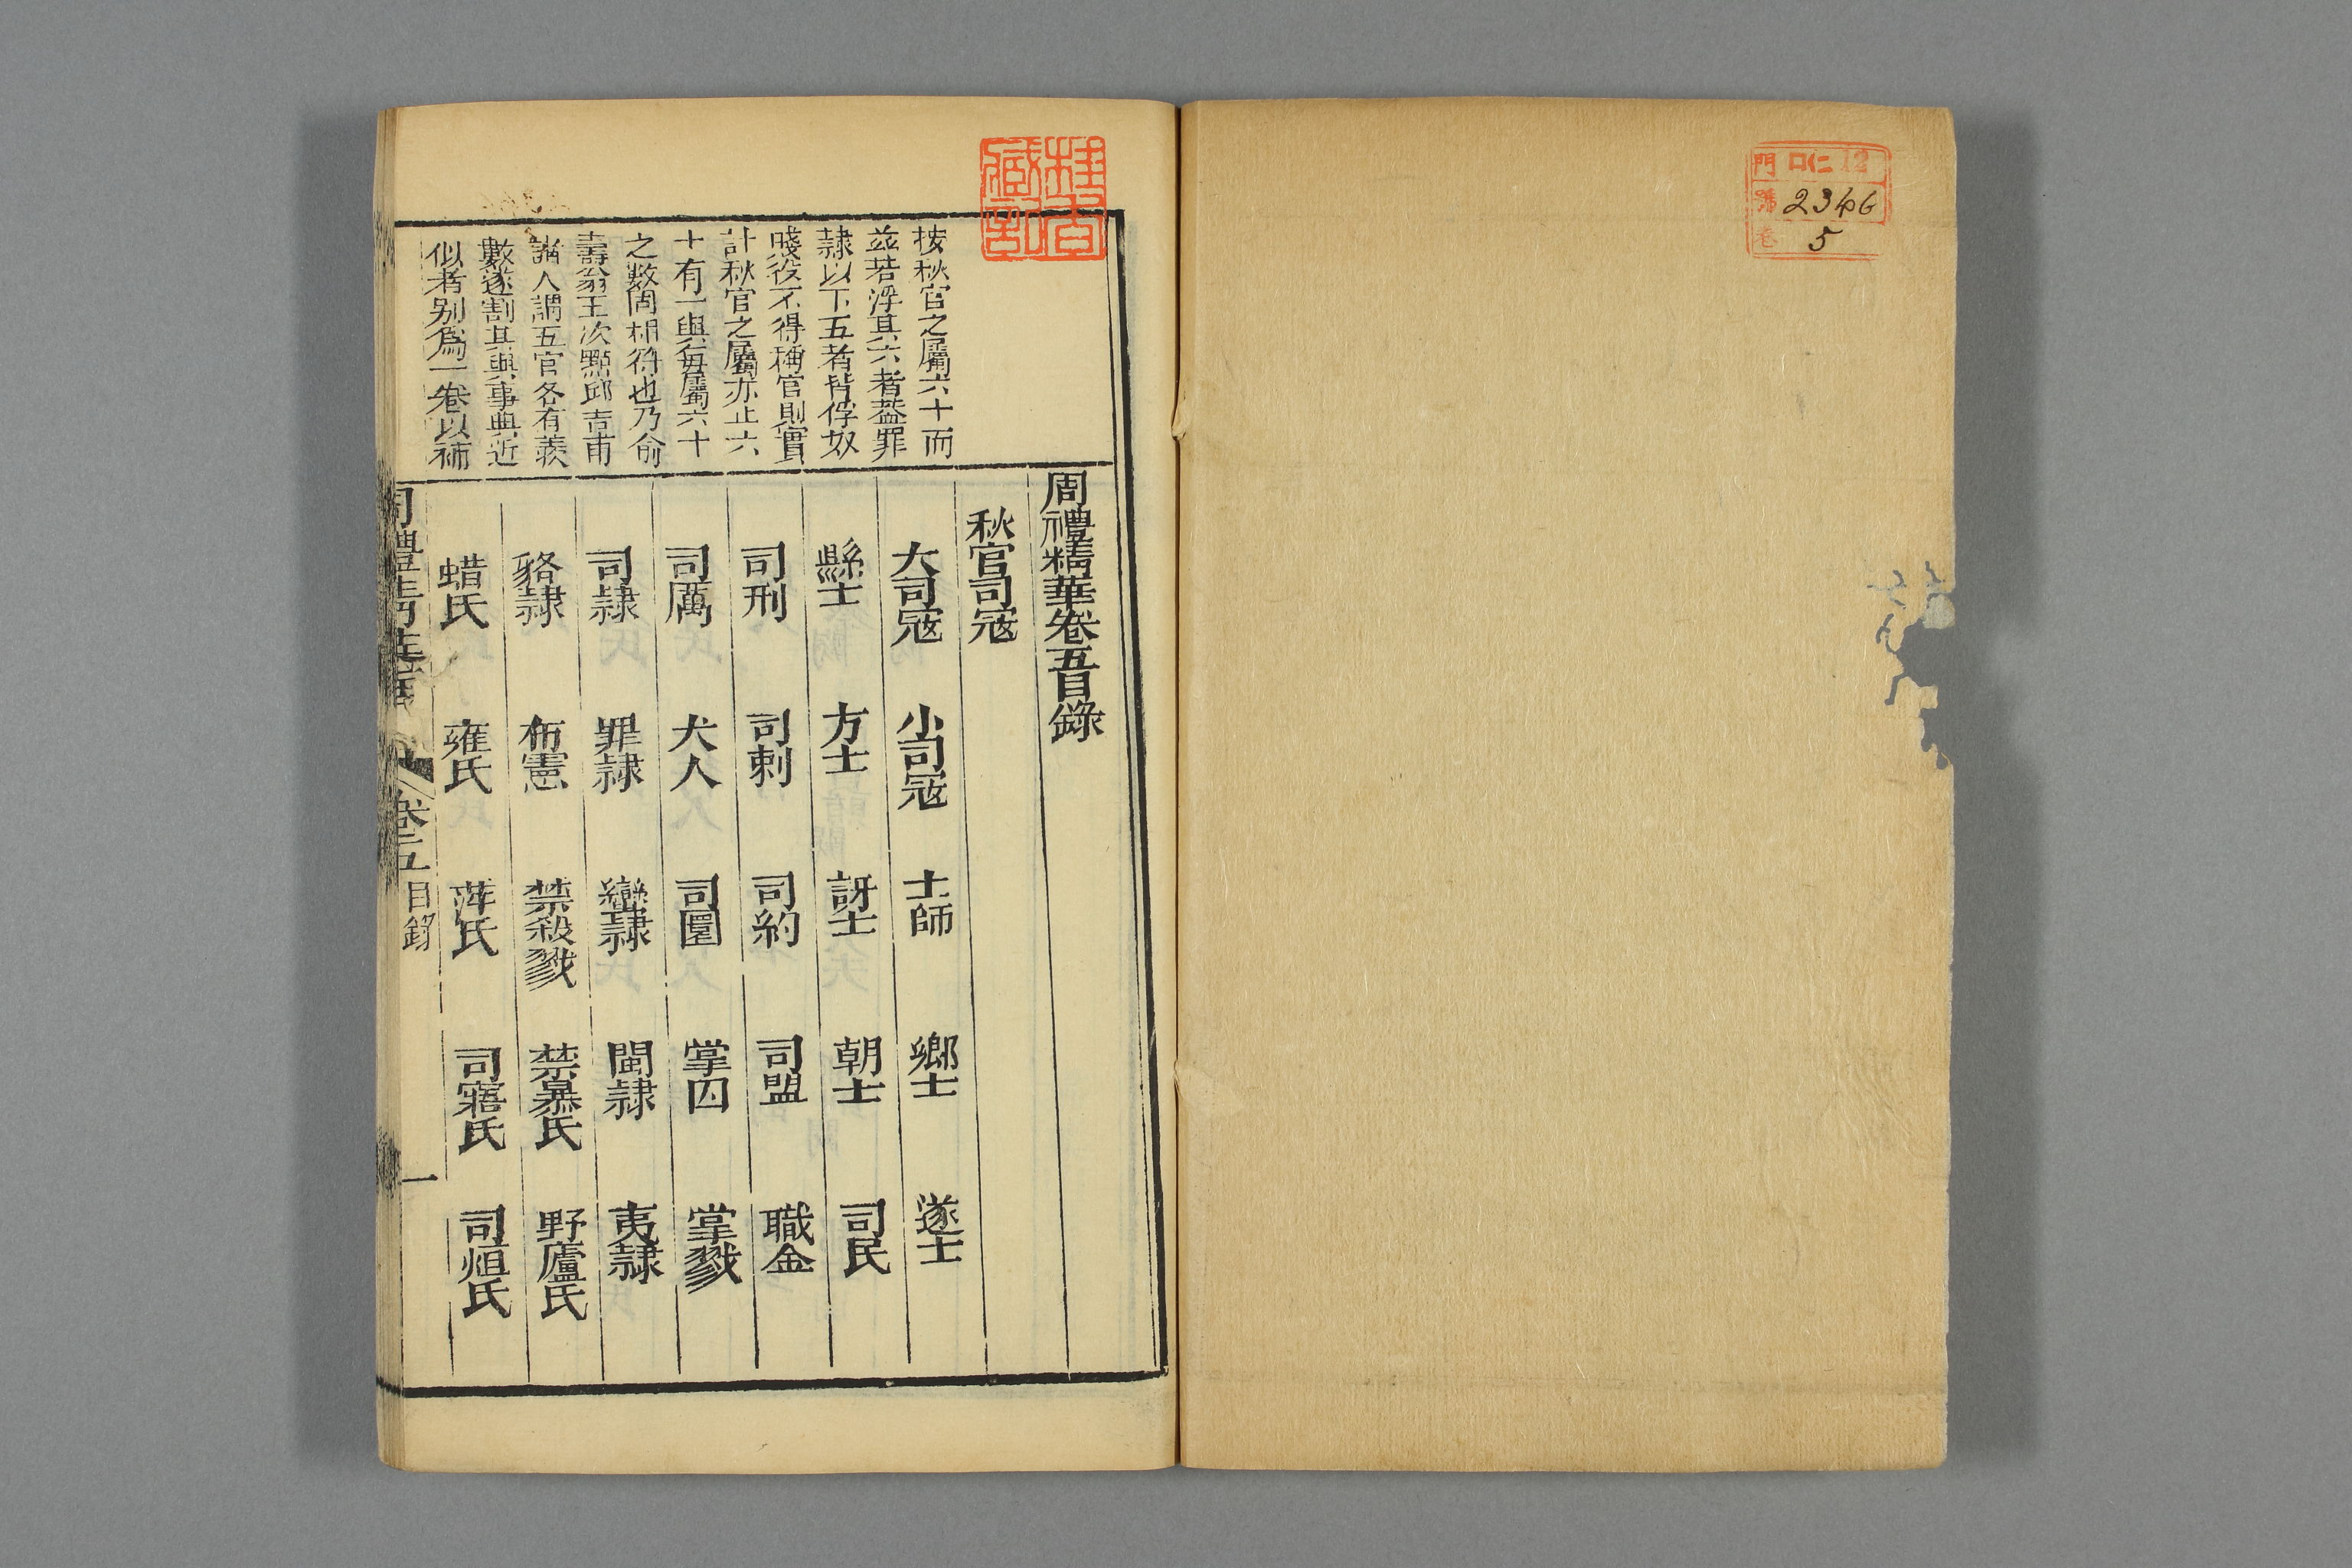 門 口仁 12
號 2346
卷 5
按秋官之屬六十而
茲若浮其六者葢罪
隷以下五者皆俘奴
賤役不得稱官則實
計秋官之屬亦止六
十有一與每屬六十
之數固相符也乃俞
壽翁王次點邱吉甫
諸人謂五官各有羨
數遂割其與事典近
似者别爲一卷以補
周禮精華卷五目錄
秋官司寇
大司寇 小司寇 士師 鄉士 遂士
縣士 方士 訝士 朝士 司民
司刑 司刺 司約 司盟 職金
司厲 犬人 司圜 掌囚 掌戮
司隷 罪隷 蠻隷 閩隷 夷隷
貉隷 布憲 禁殺戮 禁暴氏 野廬氏
蜡氏 雍氏 萍氏 司寤氏 司烜氏
卷五 目錄 一